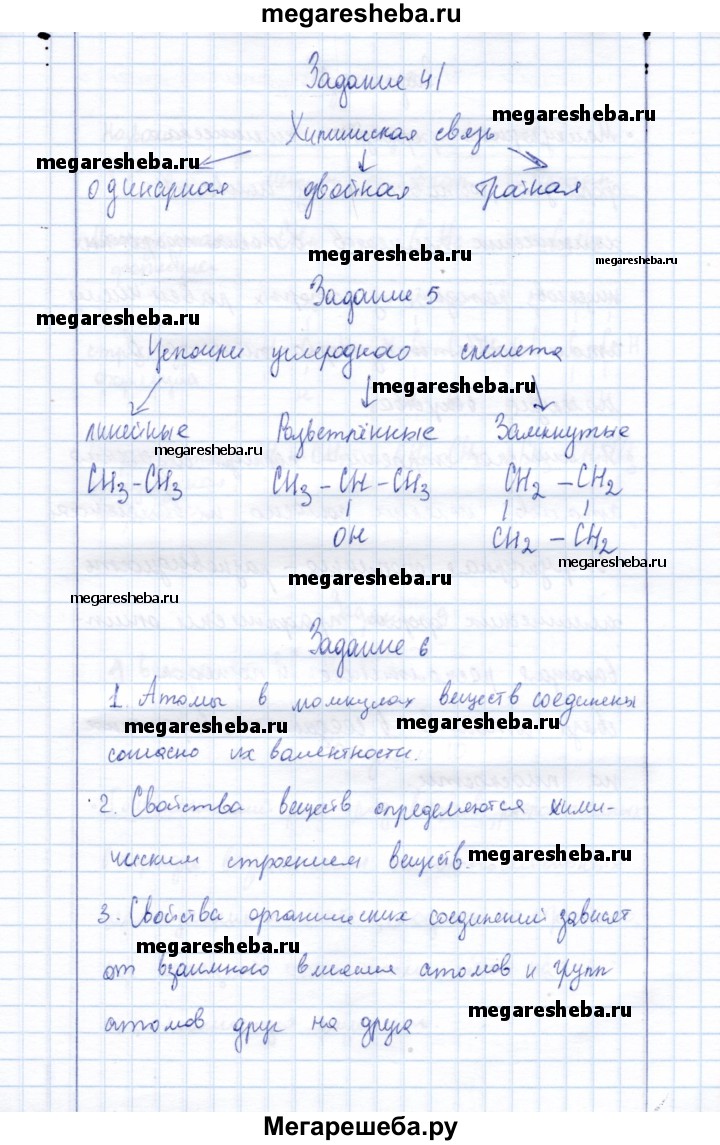 megaresheba.ru
Задание 4
megaresheba.ru
Химическая связь
megaresheba.ru
одинарная двойная тройная
megaresheba.ru
megaresheba.ru
Задание 5
megaresheba.ru
Цепочки углеродного скелета
megaresheba.ru
линейные Разветвлённые Замкнутые
megaresheba.ru
CH3-CH3 CH3-CH-CH3 CH2-CH2
OH CH2-CH2
megaresheba.ru
megaresheba.ru
megaresheba.ru
Задание 6
1. Атомы в молекулах веществ соединены
megaresheba.ru megaresheba.ru
согласно их валентности.
2. Свойства веществ определяются хими-
ческим строением веществ.
megaresheba.ru
3. Свойства органических соединений зависят
megaresheba.ru
от взаимного влияния атомов и групп
megaresheba.ru
атомов друг на друга
Мегарешеба.ру